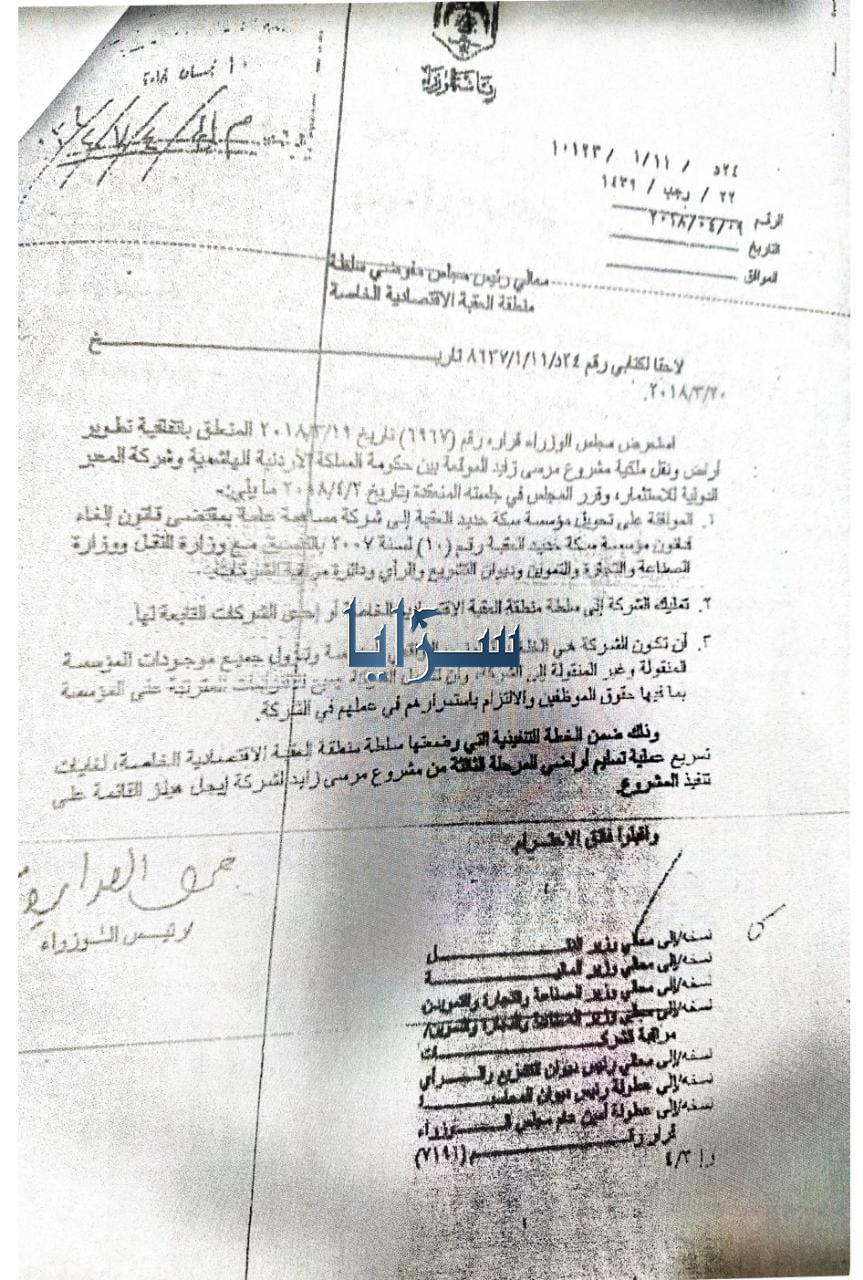 رئاسة الوزراء
١٠ نيسان ٢٠١٨
الرقم ٥٢٤ / ١١/١ / ١٠١٢٣
التاريخ ٢٢ / رجب / ١٤٣٩
الموافق
معالي رئيس مجلس مفوضي سلطة
منطقة العقبة الاقتصادية الخاصة
لاحقا لكتابي رقم ٥٢٤/١١/١/٨٦٣٧ تاريـــخ
٢٠١٨/٣/٢٠.
استعرض مجلس الوزراء قراره رقم (٦٩٦٧) تاريخ ٢٠١٨/٣/١٩ المتعلق باتفاقية تطوير
أراض ونقل ملكية مشروع مرسى زايد الموقعة بين حكومة المملكة الأردنية الهاشمية وشركة المعبر
الدولية للاستثمار، وقرر المجلس في جلسته المنعقدة بتاريخ ٢٠١٨/٤/٢ ما يلي:-
١. الموافقة على تحويل مؤسسة سكة حديد العقبة إلى شركة مساهمة عامة بمقتضى قانون إلغاء
قانون مؤسسة سكة حديد العقبة رقم (١٠) لسنة ٢٠٠٧ بالتنسيق مع وزارة النقل ووزارة
الصناعة والتجارة والتموين وديوان التشريع والرأي ودائرة مراقبة الشركات.
٢. تمليك الشركة إلى سلطة منطقة العقبة الاقتصادية الخاصة أو إحدى الشركات التابعة لها.
سرايا
٣. أن تكون الشركة هي الخلف وتؤول جميع موجودات المؤسسة
المنقولة وغير المنقولة إلى الشركة، وأن جميع الالتزامات المترتبة على المؤسسة
بما فيها حقوق الموظفين والالتزام باستمرارهم في عملهم في الشركة.
وذلك ضمن الخطة التنفيذية التي وضعتها سلطة منطقة العقبة الاقتصادية الخاصة، لغايات
تسريع عملية تسليم أراضي المرحلة الثالثة من مشروع مرسى زايد لشركة إيجل هيلز القائمة على
تنفيذ المشروع.
واقبلوا فائق الاحترام
رئيس الوزراء
نسخة/إلى معالي وزير النقـــل
نسخة/إلى معالي وزير الماليـــة
نسخة/إلى معالي وزير الصناعة والتجارة والتموين
نسخة/إلى معالي وزير الصناعة والتجارة والتموين/
مراقبة الشركـــات
نسخة/إلى معالي رئيس ديوان التشريع والـــرأي
نسخة/إلى عطوفة رئيس ديوان المحاسبـــة
نسخة/إلى عطوفة أمين عام مجلس الـــوزراء
قرار رقـــم (٧١٩١)
ر١ ٤/٣